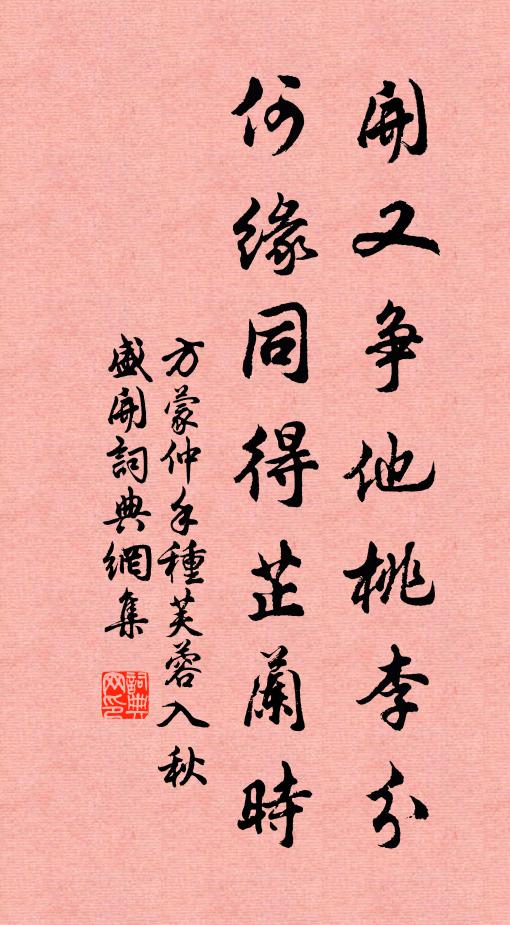 開又爭他桃李分
何緣同得芷蘭時
方蒙仲手種芙蓉入秋
盛開詞典網集
詞典
網印